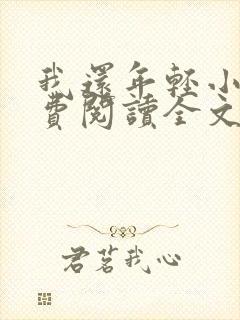 我還年輕小
費閱讀全文
君茗我心